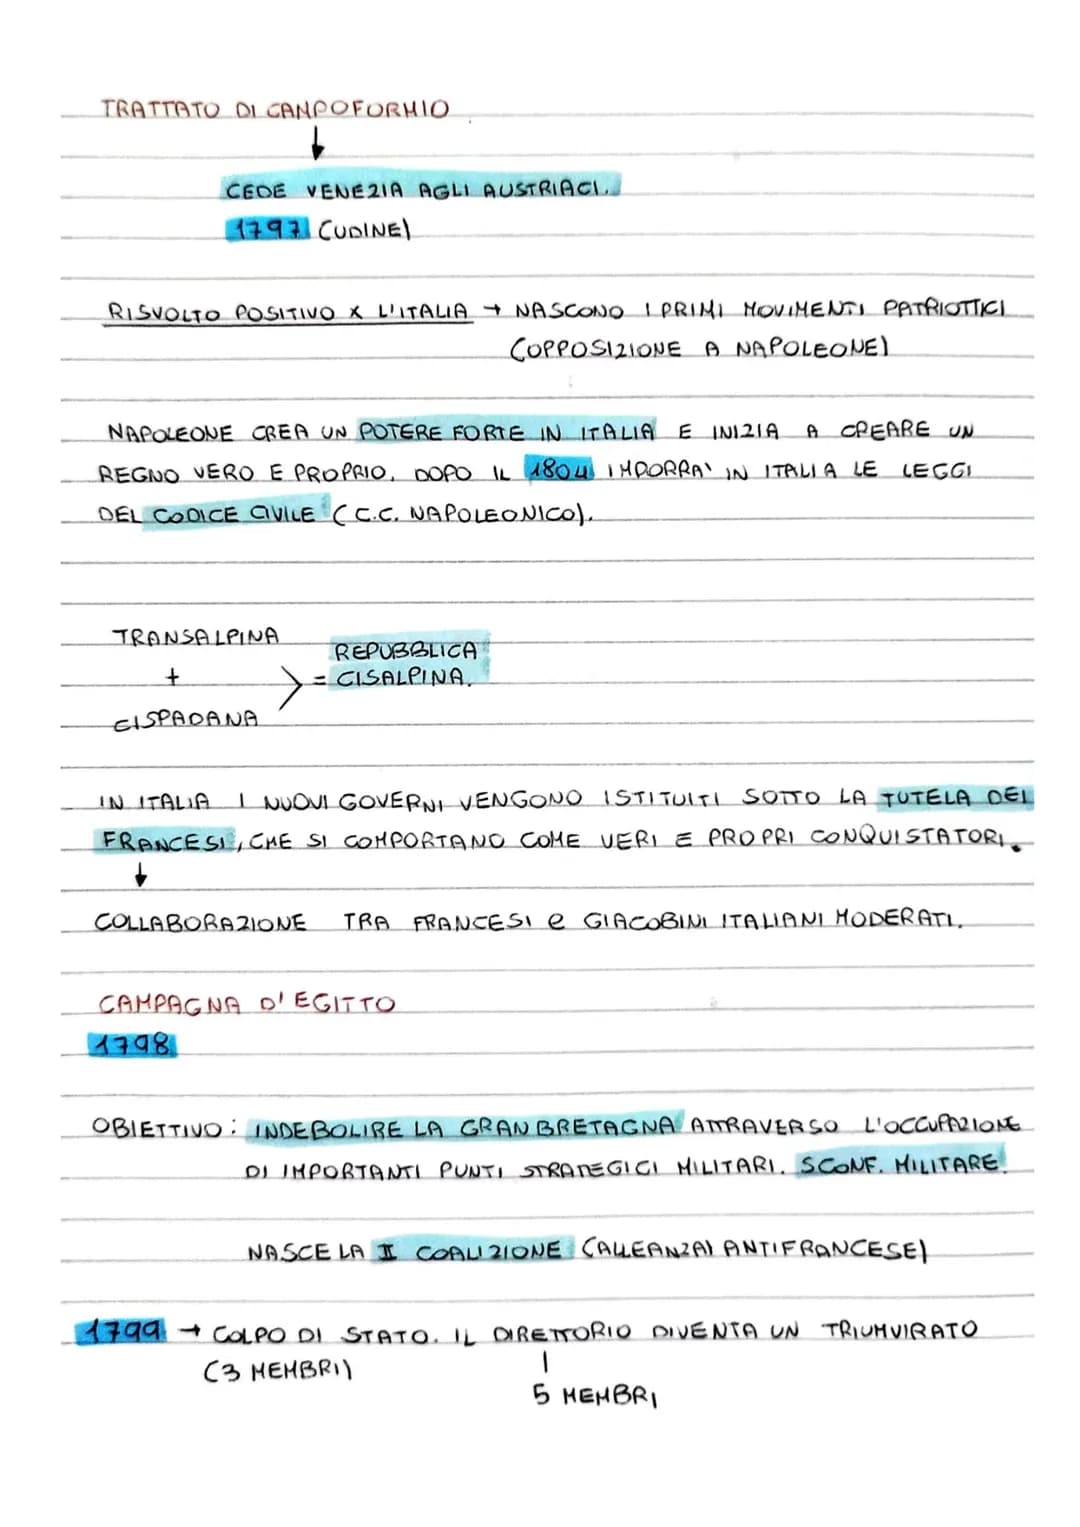 TRATTATO DI CAMPOFORMIO
↓
CEDE VENEZIA AGLI AUSTRIACI.
1797 (UDINE)
RISVOLTO POSITIVO X L'ITALIA → NASCONO I PRIMI MOVIMENTI PATRIOTTICI
(OPPOSIZIONE A NAPOLEONE)
NAPOLEONE CREA UN POTERE FORTE IN ITALIA E INIZIA A CREARE UN
REGNO VERO E PROPRIO. DOPO IL 1804 IMPORRA' IN ITALIA LE LEGGI
DEL CODICE CIVILE (C.C. NAPOLEONICO).
TRANSALPINA
+
CISPADANA
= REPUBBLICA
CISALPINA.
IN ITALIA I NUOVI GOVERNI VENGONO ISTITUITI SOTTO LA TUTELA DEI
FRANCESI, CHE SI COMPORTANO COME VERI E PROPRI CONQUISTATORI.
↓
COLLABORAZIONE TRA FRANCESI e GIACOBINI ITALIANI MODERATI.
CAMPAGNA D'EGITTO
1798
OBIETTIVO: INDEBOLIRE LA GRAN BRETAGNA ATTRAVERSO L'OCCUPAZIONE
DI IMPORTANTI PUNTI STRATEGICI MILITARI. SCONF. MILITARE.
NASCE LA II COALIZIONE (ALLEANZA) ANTIFRANCESE)
1799 → COLPO DI STATO. IL DIRETTORIO DIVENTA UN TRIUMVIRATO
(3 MEMBRI)
5 MEMBRI